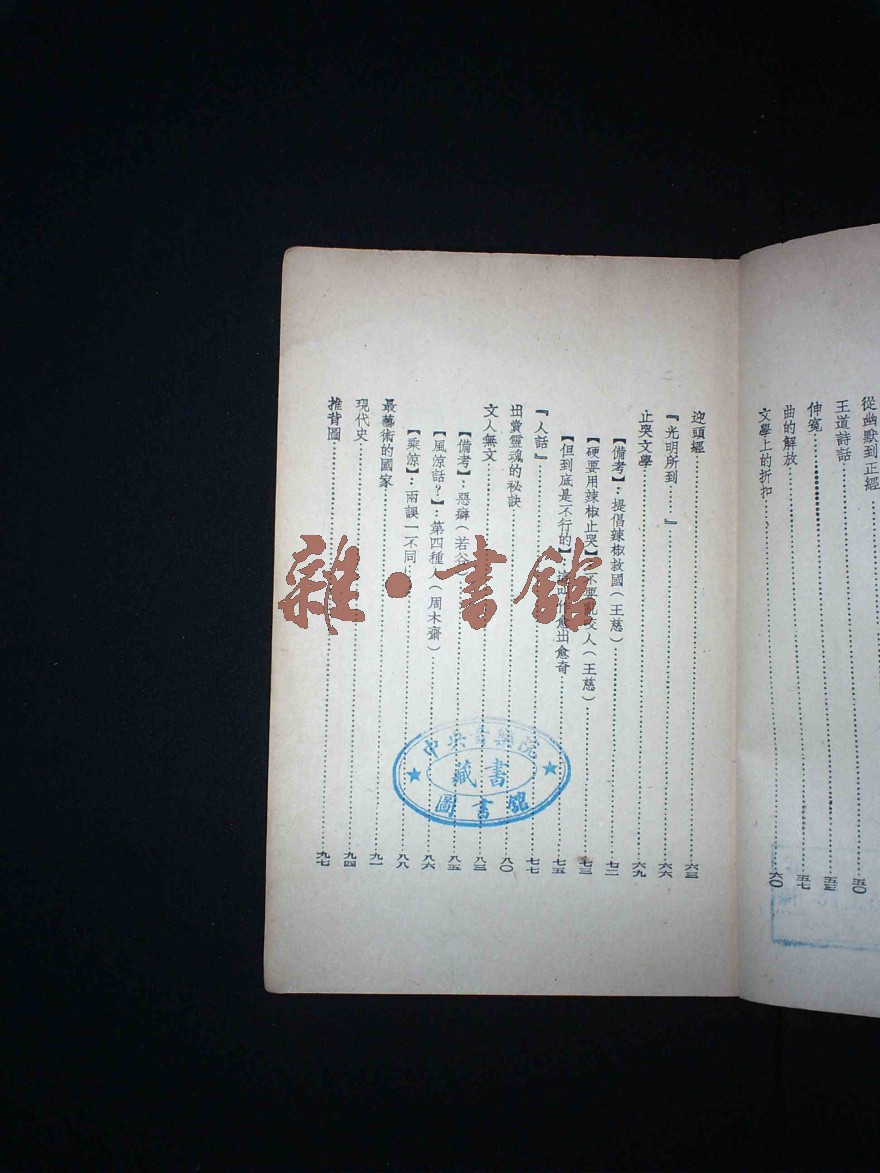 從幽默到正經
王道詩話……五〇
伸冤……五三
曲的解放……五七
文學上的折扣……六〇
迎頭經……六三
『光明所到……』……六六
止哭文學……六九
【備考】：提倡辣椒救國（王慈）……七二
【硬要用辣椒止哭】不要咬人（王慈）……七三
【但到底是不行的】：叫作愈出愈奇……七五
『人話』……七七
出賣靈魂的秘訣……八〇
文人無文……八三
【備考】：惡癖（若谷……八五
【風涼話？】：第四種人（周木齋）……八六
【乘涼】：兩誤一不同……八八
最藝術的國家……九一
現代史……九四
推背圖……九七
雜·書館
中央音樂院
藏書
圖書館